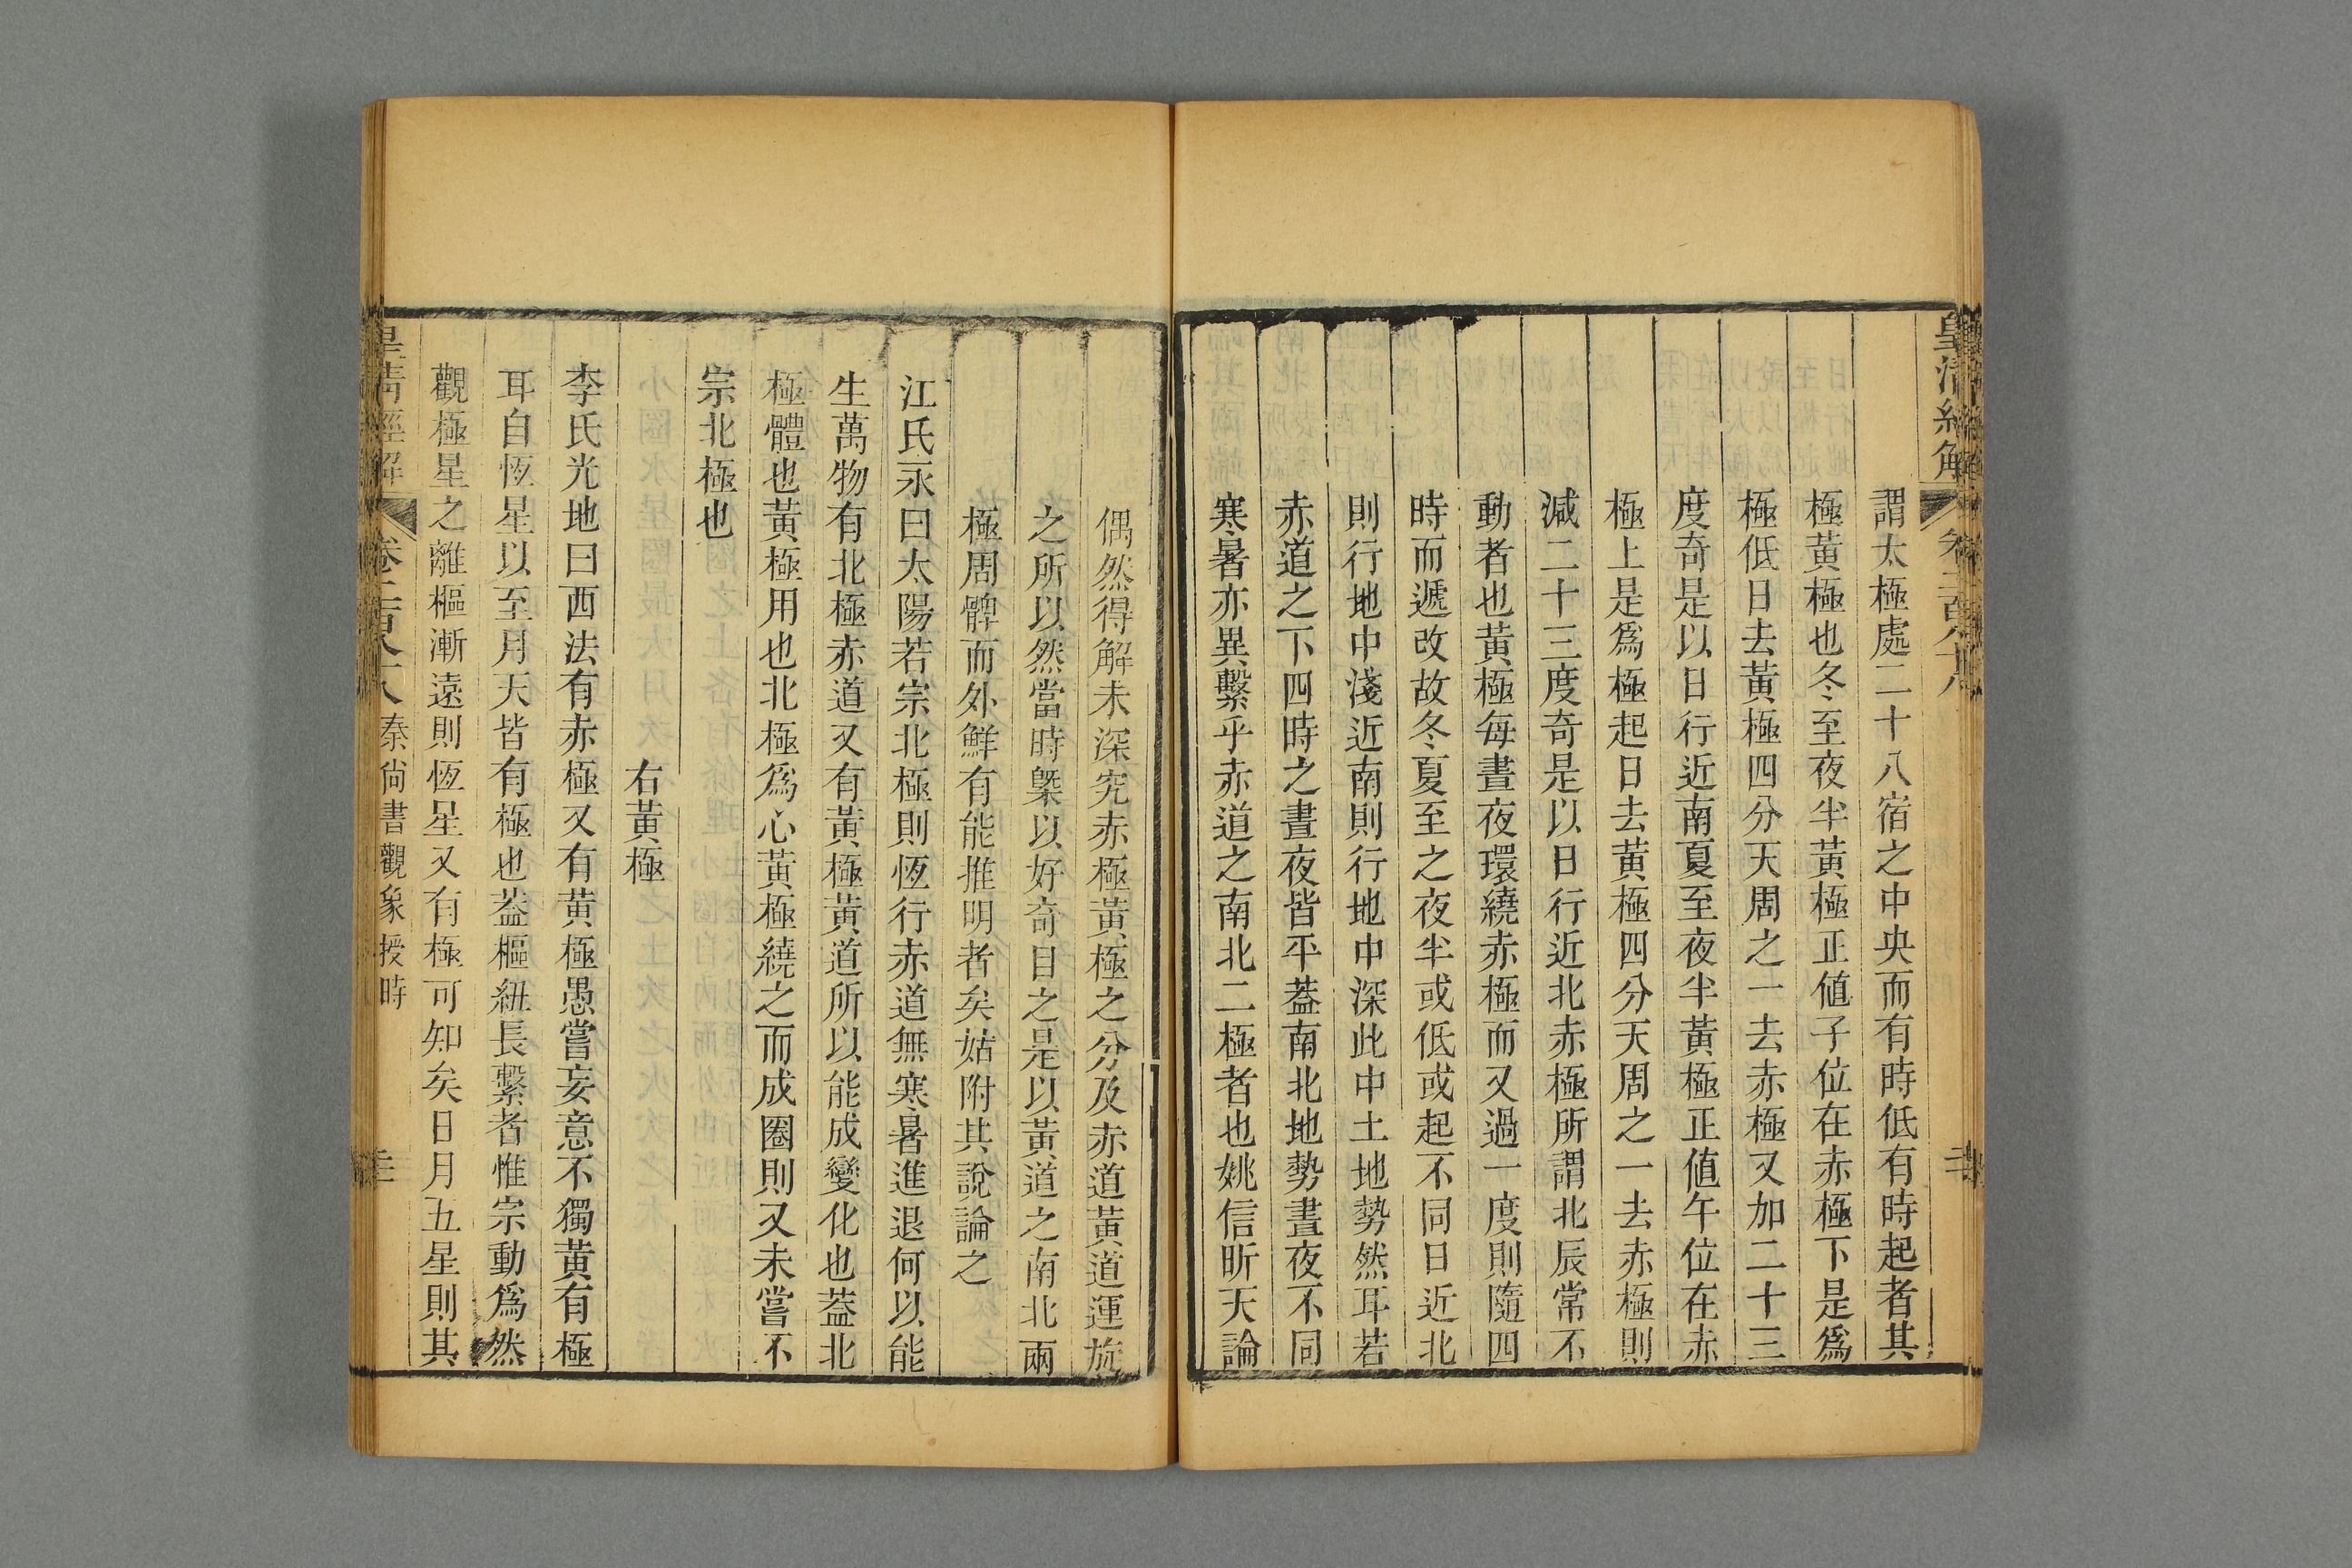 皇清經解
謂太極處二十八宿之中央而有時低有時起者其
極黃極也冬至夜半黃極正値子位在赤極下是爲
極低日去黃極四分天周之一去赤極又加二十三
度奇是以日行近南夏至夜半黃極正値午位在赤
極上是爲極起日去黃極四分天周之一去赤極則
減二十三度奇是以日行近北赤極所謂北辰常不
動者也黃極每晝夜環繞赤極而又過一度則隨四
時而遞改故冬夏至之夜半或低或起不同日近北
則行地中淺近南則行地中深此中土地勢然耳若
赤道之下四時之晝夜皆平葢南北地勢晝夜不同
寒暑亦異繫乎赤道之南北二極者也姚信昕天論
偶然得解未深究赤極黃極之分及赤道黃道運旋
之所以然當時槩以好奇目之是以黃道之南北兩
極周髀而外鮮有能推明者矣姑附其說論之
江氏永曰太陽若宗北極則恆行赤道無寒暑進退何以能
生萬物有北極赤道又有黃極黃道所以能成變化也葢北
極體也黃極用也北極爲心黃極繞之而成圈則又未嘗不
宗北極也
右黃極
李氏光地曰西法有赤極又有黃極愚嘗妄意不獨黃有極
耳自恆星以至月天皆有極也葢樞紐長繫者惟宗動爲然
觀極星之離樞漸遠則恆星又有極可知矣日月五星則其
皇清經解 秦尙書觀象授時